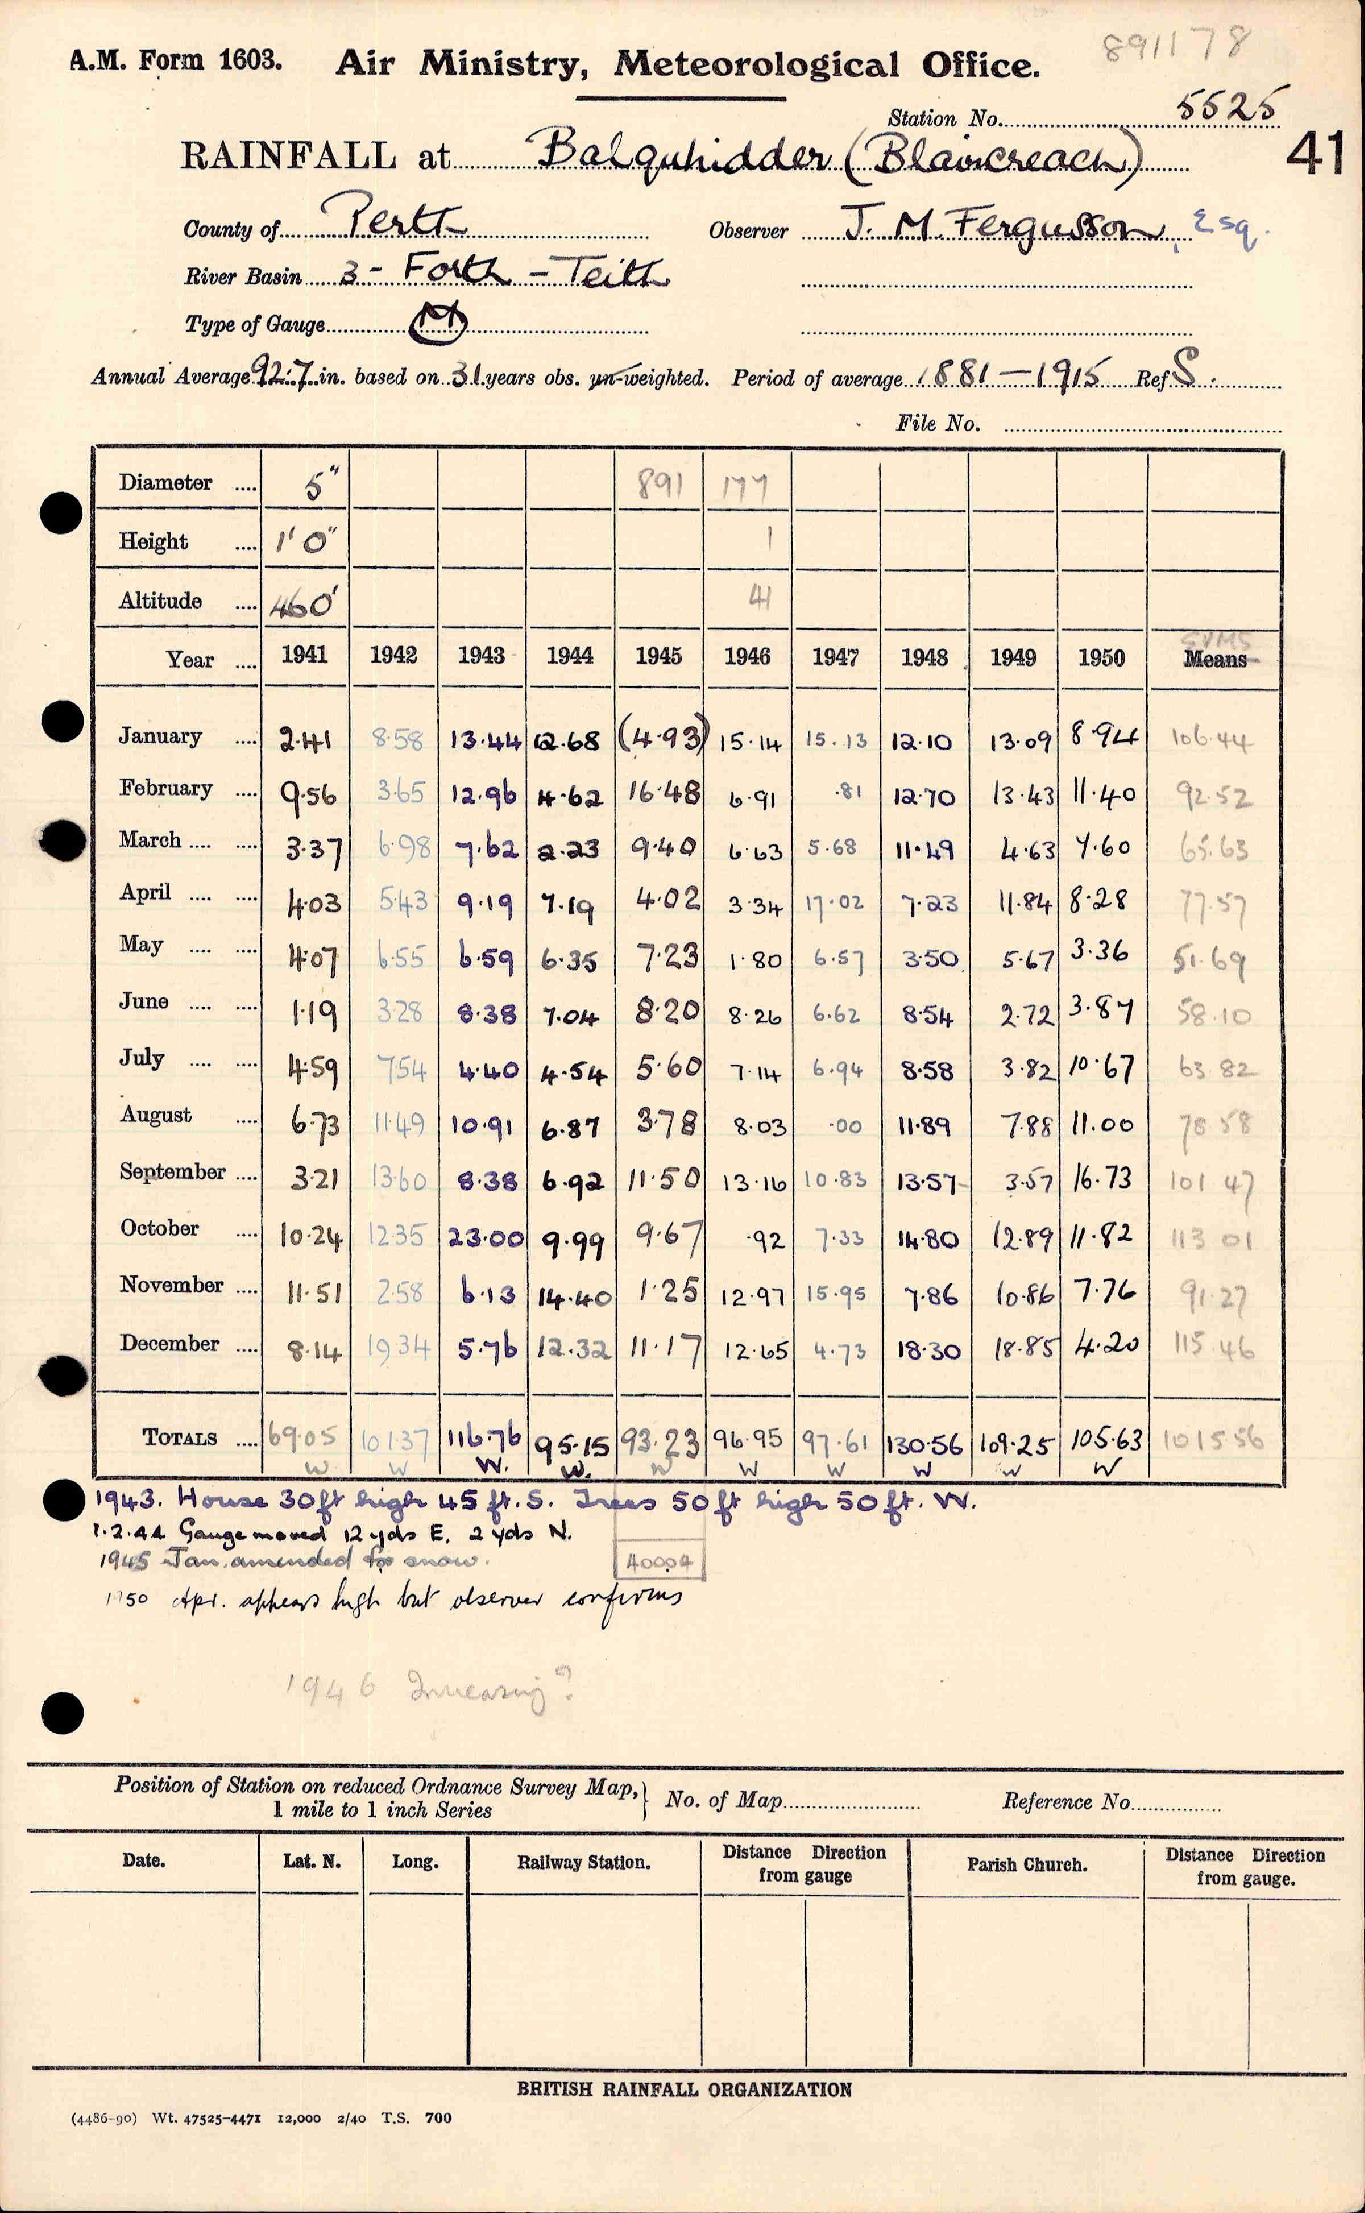 891178
A.M. Form 1603. Air Ministry, Meteorological Office.
Station No. 5525
RAINFALL at Balquhidder (Blaircreach) 41
County of Perth Observer J. M. Fergusson, Esq.
River Basin 3 - Forth - Teith
Type of Gauge M
Annual Average 92.7 in. based on 31 years obs. un-weighted. Period of average 1881-1915 Ref S.
File No.
Diameter .... 5" 891 177
Height .... 1' 0" 1
Altitude .... 460' 41
SUMS
Year .... 1941 1942 1943 1944 1945 1946 1947 1948 1949 1950 Means
January .... 2.41 8.58 13.44 12.68 (4.93) 15.14 15.13 12.10 13.09 8.94 106.44
February .... 9.56 3.65 12.96 4.62 16.48 6.91 .81 12.70 13.43 11.40 92.52
March .... .... 3.37 6.98 7.62 2.23 9.40 6.63 5.68 11.49 4.63 7.60 65.63
April .... .... 4.03 5.43 9.19 7.19 4.02 3.34 17.02 7.23 11.84 8.28 77.57
May .... .... 4.07 6.55 6.59 6.35 7.23 1.80 6.57 3.50 5.67 3.36 51.69
June .... .... 1.19 3.28 8.38 7.04 8.20 8.26 6.62 8.54 2.72 3.87 58.10
July .... .... 4.59 7.54 4.40 4.54 5.60 7.14 6.94 8.58 3.82 10.67 63.82
August .... 6.73 11.49 10.91 6.87 3.78 8.03 .00 11.89 7.88 11.00 78.58
September .... 3.21 13.60 8.38 6.92 11.50 13.16 10.83 13.57 3.57 16.73 101.47
October .... 10.24 12.35 23.00 9.99 9.67 .92 7.33 14.80 12.89 11.82 113.01
November .... 11.51 2.58 6.13 14.40 1.25 12.97 15.95 7.86 10.86 7.76 91.27
December .... 8.14 19.34 5.76 12.32 11.17 12.65 4.73 18.30 18.85 4.20 115.46
TOTALS .... 69.05 101.37 116.76 95.15 93.23 96.95 97.61 130.56 109.25 105.63 1015.56
W W W. W. W W W W W W
1943. House 30ft high 45 ft. S. Trees 50ft high 50ft. W.
1.2.44 Gauge moved 12 yds E, 2 yds N.
1945 Jan. amended for snow. 40004
1950 Apr. appears high but observer confirms
1946 Increasing?
Position of Station on reduced Ordnance Survey Map,
1 mile to 1 inch Series No. of Map Reference No.
Date. Lat. N. Long. Railway Station. Distance Direction from gauge Parish Church. Distance Direction from gauge.
BRITISH RAINFALL ORGANIZATION
(4486-90) Wt. 47525-4471 12,000 2/40 T.S. 700